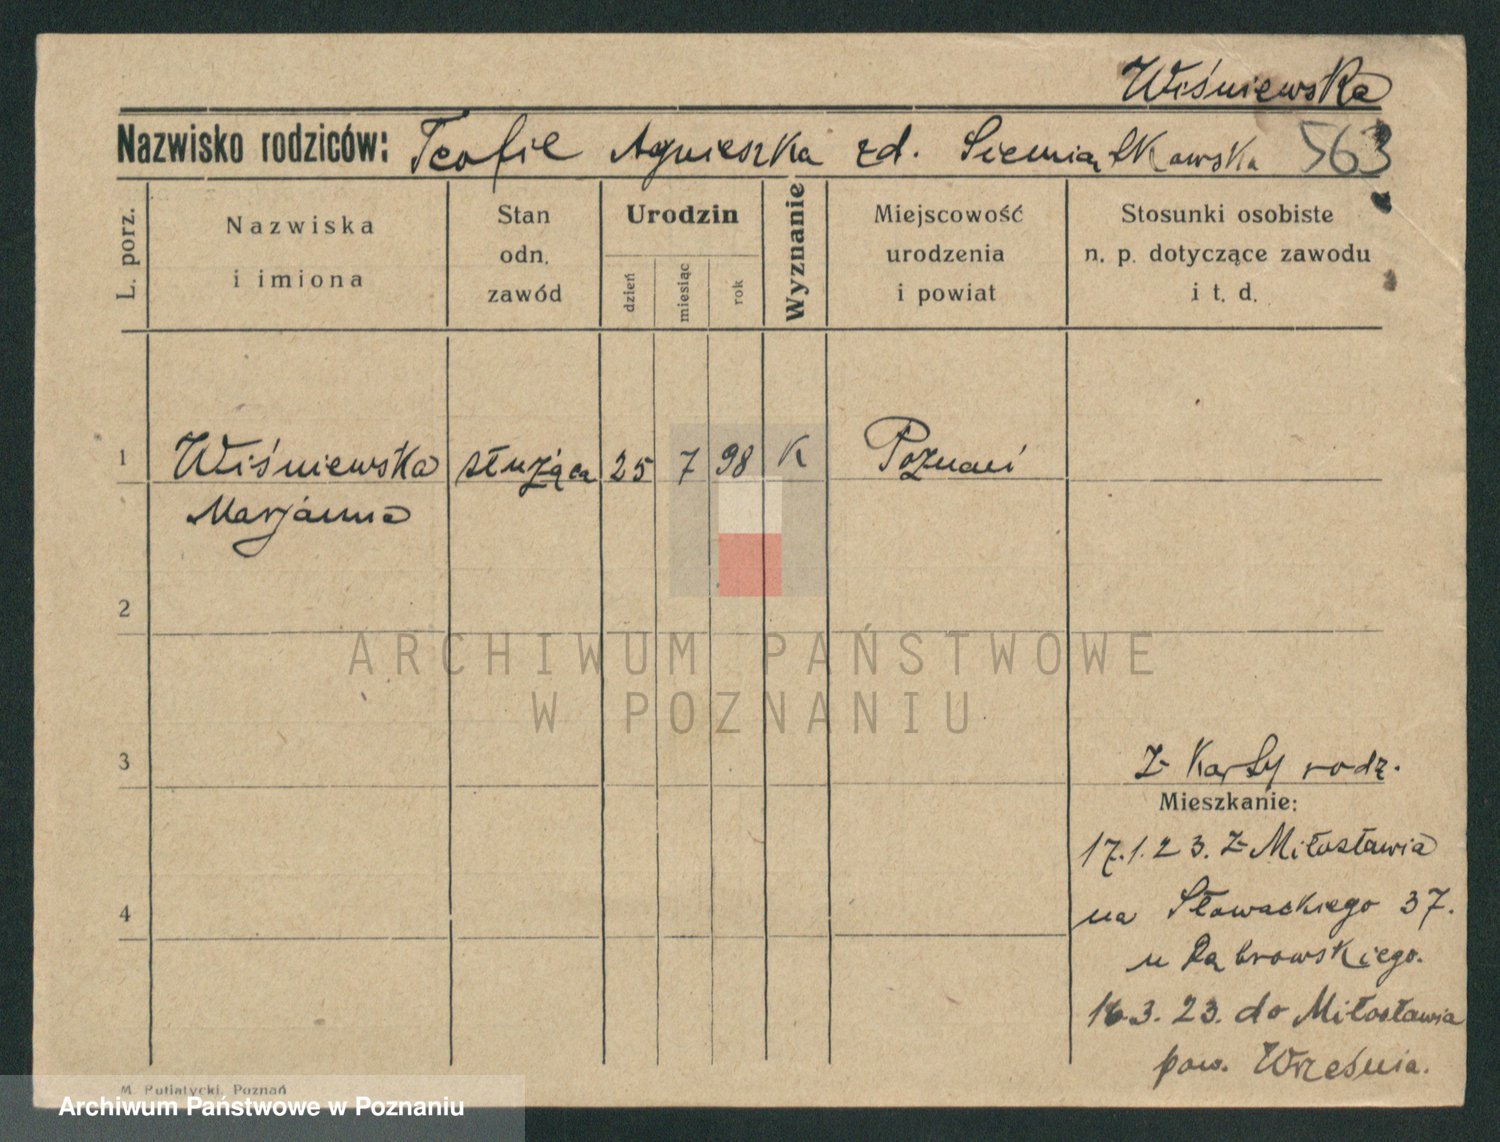 Wiśniewska
Nazwisko rodziców: Teofil Agnieszka zd. Siemiątkowska 563
L. porz.
Nazwiska
i imiona
Stan
odn.
zawód
Urodzin
dzień
miesiąc
rok
Wyznanie
Miejscowość
urodzenia
i powiat
Stosunki osobiste
n. p. dotyczące zawodu
i t. d.
1 Wiśniewska służąca 25 7 98 K Poznań
Marjanna
2
ARCHIWUM PAŃSTWOWE
W POZNANIU
3
Z Karty rodz.
Mieszkanie:
17.1.23. z Miłosławia
na Słowackiego 37.
4
u Dąbrowskiego.
16.3.23. do Miłosławia
pow. Września.
M. Putiatycki, Poznań
Archiwum Państwowe w Poznaniu